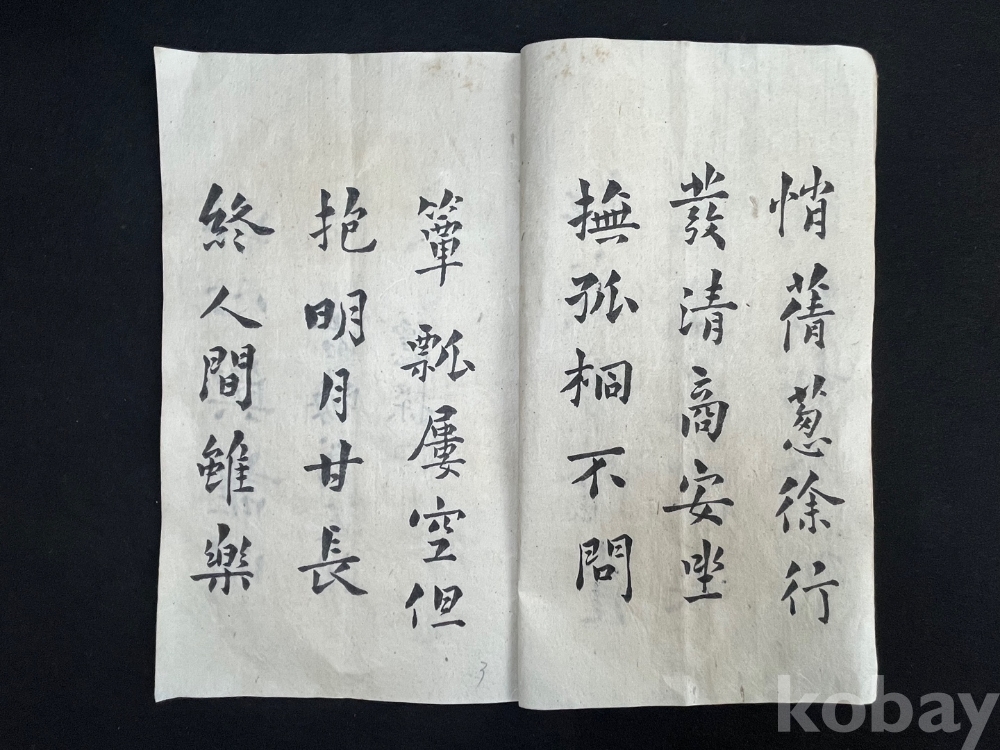 悄蒨葱徐行
發清商安坐
撫孤桐不問
簞瓢屢空但
抱明月甘長
終人間雖樂
3
kobay